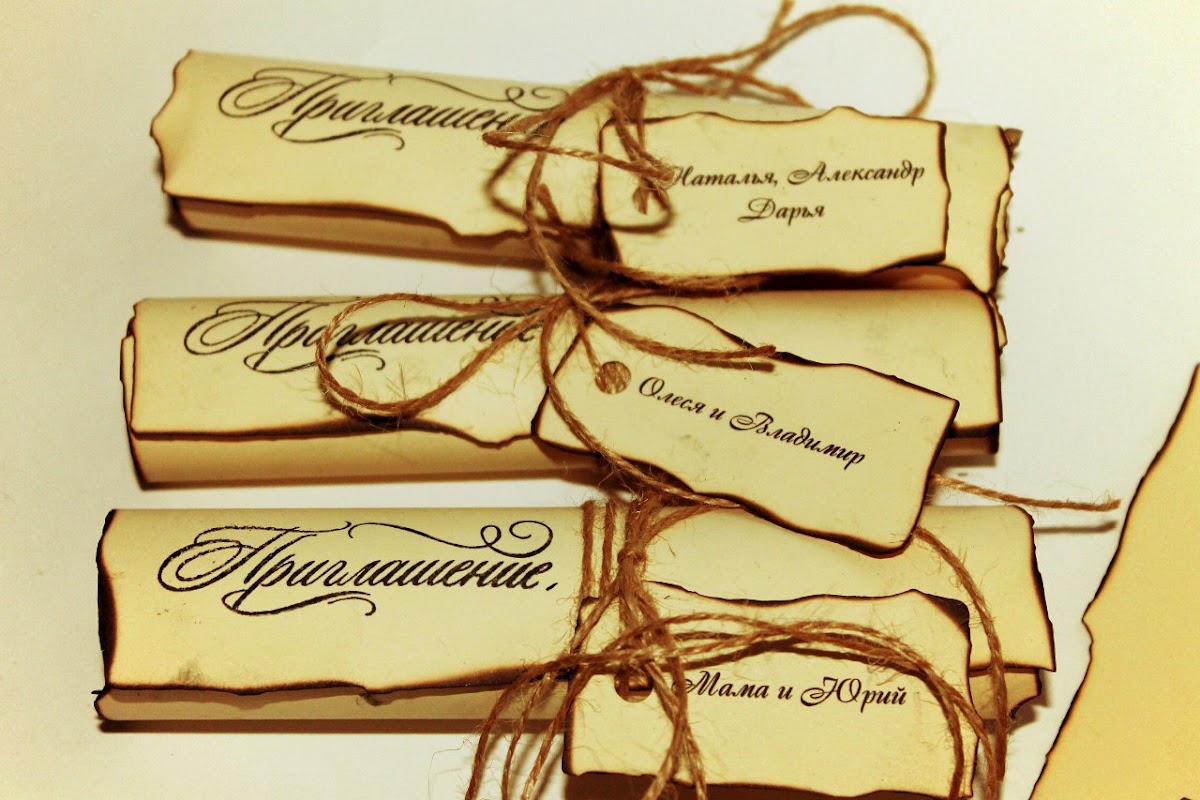 Приглашение
Наталья, Александр
Дарья
Приглашение
Олеся и Владимир
Приглашение,
Мама и Юрий